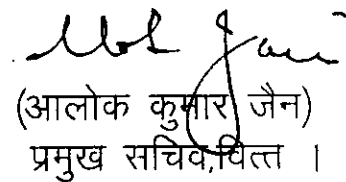 (आलोक कुमार जैन)
प्रमुख सचिव,वित्त ।